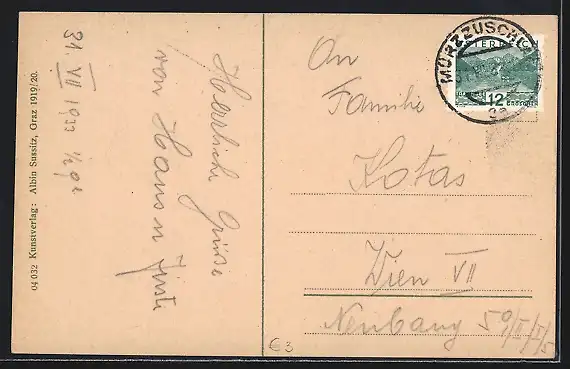 04 032 Kunstverlag: Albin Sussitz, Graz 1919/20.
31. VII 1933 ½ 92
Herrliche Grüße
von Hans u
An
Familie
Kotas
Wien VII
Neubaug 59/II/I/5
MÜRZZUSCHLAG
ÖSTERREICH
12
GROSCHEN
€3